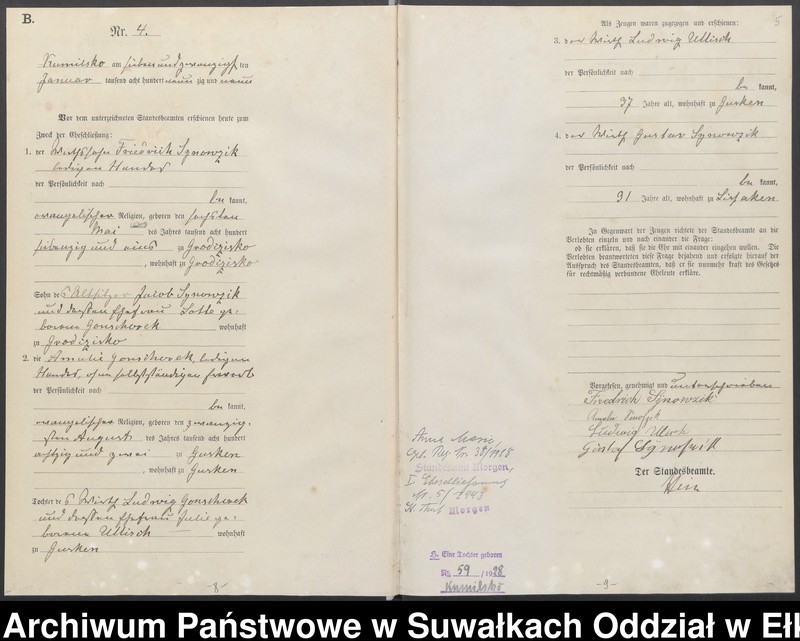 B.
Nr. 4.
Kumilsko am sieben und zwanzigsten
Januar tausend acht hundert neun zig und neun
Vor dem unterzeichneten Standesbeamten erschienen heute zum
Zweck der Eheschließung:
1. der Wirthssohn Friedrich Synowzik
ledigen Standes
der Persönlichkeit nach
be kannt,
evangelischer Religion, geboren den sechsten
Mai des Jahres tausend acht hundert
siebenzig und eins zu Grodzisko
, wohnhaft zu Grodzisko
Sohn des Altsitzer Jacob Synowzik
und dessen Ehefrau Lotte ge-
borene Gonschorek wohnhaft
zu Grodzisko
2. die Amalie Gonschorek, ledigen
Standes, ohne selbstständigen Erwerb
der Persönlichkeit nach
be kannt,
evangelischer Religion, geboren den zwanzig-
sten August des Jahres tausend acht hundert
achtzig und zwei zu Gurken
, wohnhaft zu Gurken
Tochter des Wirth Ludwig Gonschorek
und dessen Ehefrau Julie ge-
borene Ullisch wohnhaft
zu Gurken
-8-
5
Als Zeugen waren zugezogen und erschienen:
3. der Wirth Ludwig Ullisch
der Persönlichkeit nach
be kannt,
37 Jahre alt, wohnhaft zu Gurken
4. der Wirth Gustav Synowzik
der Persönlichkeit nach
be kannt,
31 Jahre alt, wohnhaft zu Lissaken
In Gegenwart der Zeugen richtete der Standesbeamte an die
Verlobten einzeln und nach einander die Frage:
ob sie erklären, daß sie die Ehe mit einander eingehen wollen. Die
Verlobten beantworteten diese Frage bejahend und erfolgte hierauf der
Ausspruch des Standesbeamten, daß er sie nunmehr kraft des Gesetzes
für rechtmäßig verbundene Eheleute erkläre.
Vorgelesen, genehmigt und unterschrieben
Friedrich Synowzik
Amalie
Ludwig
Gustaf
Der Standesbeamte.
Anna Marie,
Geb. Reg. Nr. 38/1918
Standesamt Morgen,
I. Eheschliessung
Nr. 5/1943
St. Amt Morgen
Eine Tochter geboren
Nr. 59 /1928
Kumilsko
-9-
Archiwum Państwowe w Suwałkach Oddział w Eł